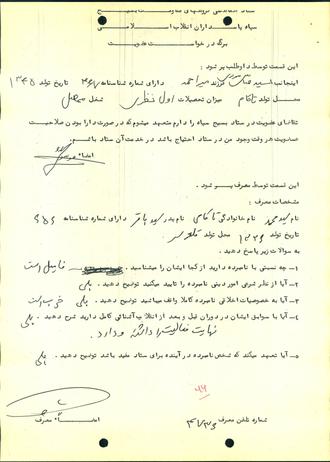 ستاد
سپاه پاسداران انقلاب اسلامی
برگ درخواست عضویت
این قسمت توسط داوطلب پر شود.
اینجانب سید فرزند میراحمد دارای شماره شناسنامه تاریخ تولد ۱۳۴۵
محل تولد میزان تحصیلات اول نظری شغل محصل
تقاضای عضویت در ستاد بسیج سپاه را دارم متعهد میشوم که در صورت دارا بودن صلاحیت
عضویت هر وقت وجود من در ستاد احتیاج باشد در خدمت آن ستاد باشم.
امضاء
این قسمت توسط معرف پر شود.
مشخصات معرف:
نام سید محمد نام خانوادگی نام پدر سید باقر دارای شماره شناسنامه ۶۸۶
تاریخ تولد محل تولد
به سوالات زیر پاسخ دهید.
۱- چه نسبتی با نامبرده دارید از کجا ایشان را میشناسید. فامیل است
۲- آیا از نظر شرعی امور دینی نامبرده را تایید میکنید توضیح دهید. بلی
۳- آیا به خصوصیات اخلاقی نامبرده کاملا واقف میباشید توضیح دهید. خوب است
۴- آیا با سوابق ایشان در دوران قبل و بعد از انقلاب آشنائی کامل دارید شرح دهید. بلی
نهایت فعالیت را داشته و دارد.
۵- آیا تعهد میکند که شخص نامبرده در آینده برای ستاد مفید باشد توضیح دهید. بلی
شماره تلفن معرف
امضاء معرف